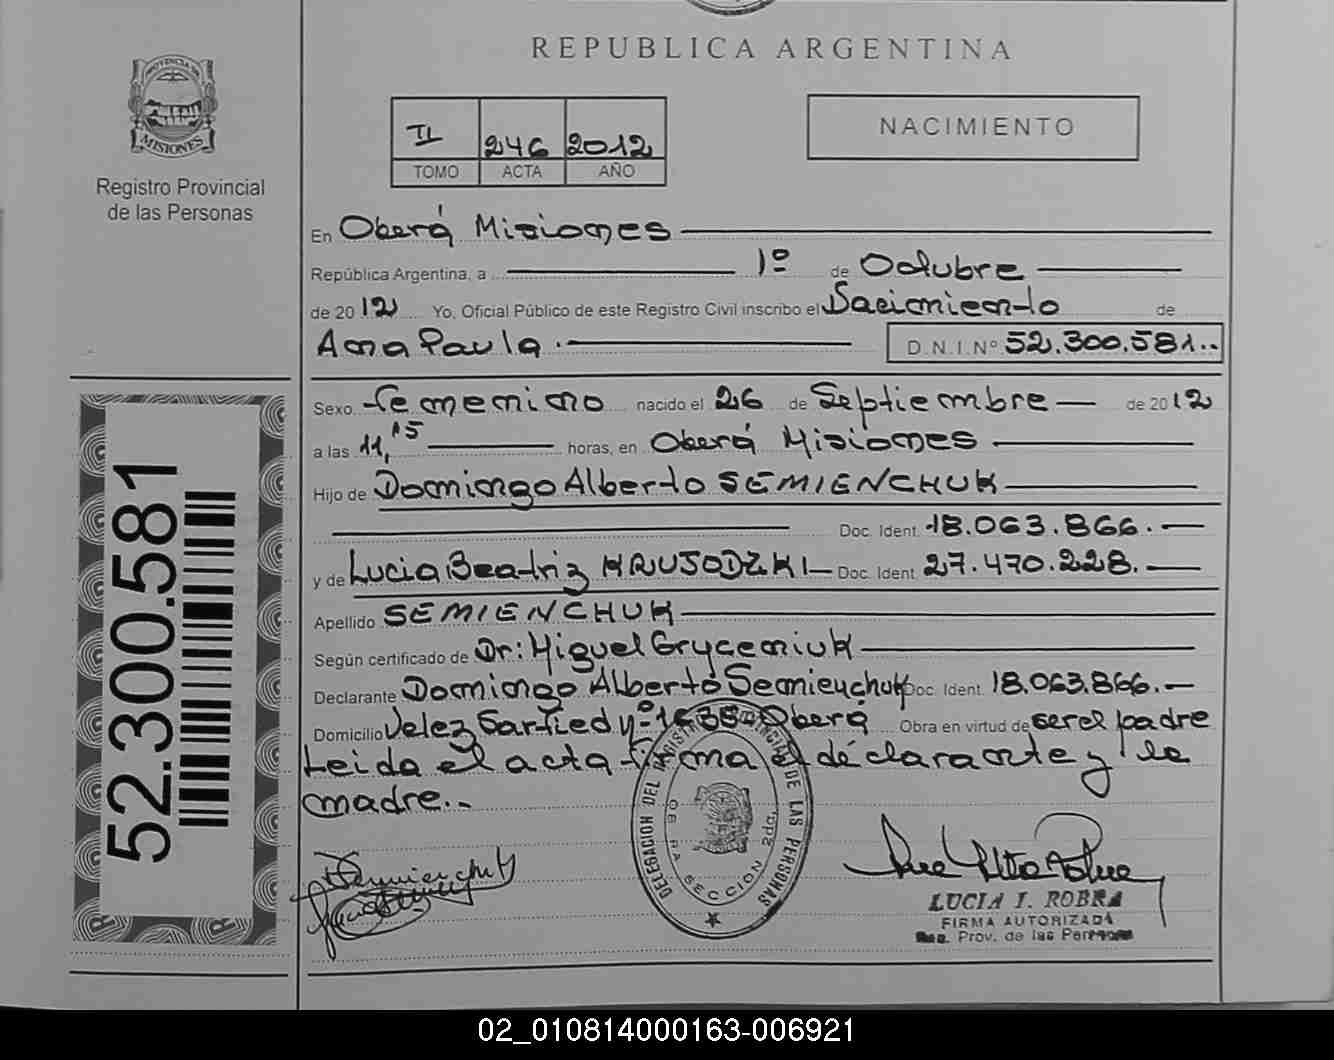 REPUBLICA ARGENTINA
PROVINCIA DE
MISIONES
Registro Provincial
de las Personas
II 246 2012
TOMO ACTA AÑO
NACIMIENTO
En Oberá Misiones
República Argentina, a 1º de Octubre
de 2012 Yo, Oficial Público de este Registro Civil inscribo el Nacimiento de
Ana Paula.- D.N.I.Nº 52.300.581..
Sexo Femenino nacido el 26 de Septiembre de 2012
a las 11,15 horas, en Oberá Misiones
Hijo de Domingo Alberto SEMIENCHUK
Doc. Ident. 18.063.866.
y de Lucia Beatriz KRUJODZKI Doc. Ident. 27.470.228.
Apellido SEMIENCHUK
Según certificado de Dr: Miguel Gryceniuk
Declarante Domingo Alberto Semienchuk Doc. Ident. 18.063.866.-
Domicilio Velez Sarfied Nº 1635-Oberá Obra en virtud de ser el padre
Leida el acta firma el declarante y la
madre..
52.300.581
DELEGACION DEL REGISTRO PROVINCIAL DE LAS PERSONAS
OBERA SECCION 2da.
LUCIA I. ROBRA
FIRMA AUTORIZADA
Reg. Prov. de las Personas
02_010814000163-006921